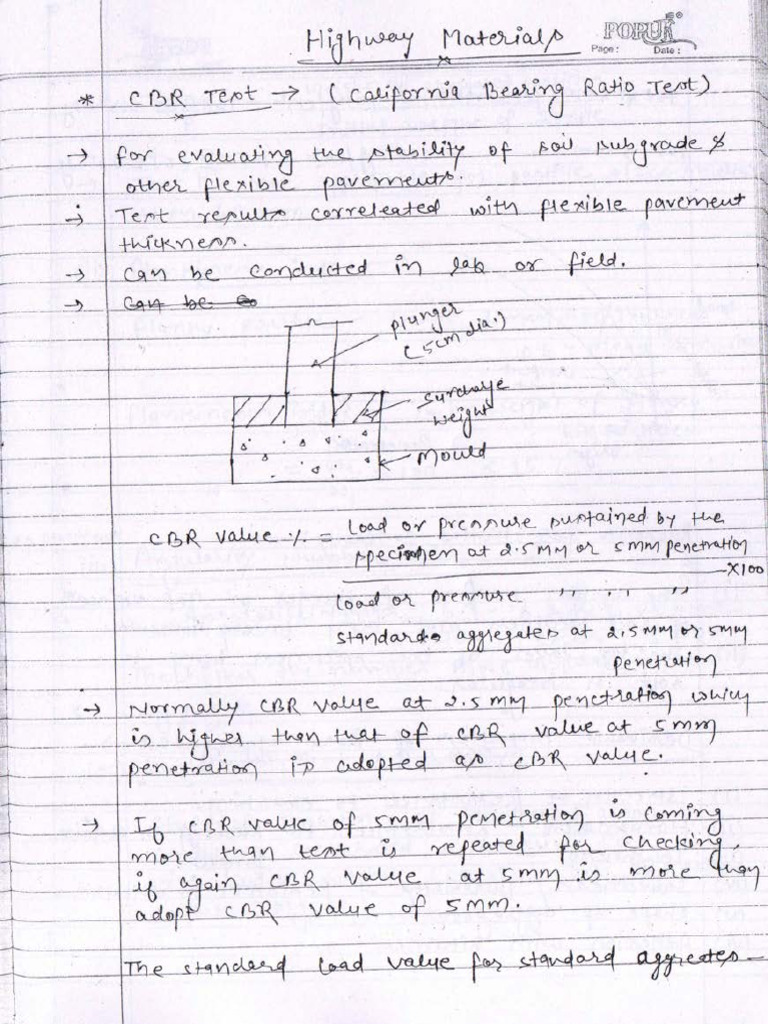 Highway Materials
POPULAR
Page: Date:
* CBR Test → (California Bearing Ratio Test)
→ for evaluating the stability of soil subgrade &
other flexible pavements.
→ Test results correleated with flexible pavement
thickness.
→ Can be conducted in lab or field.
→ Can be
plunger
(5cm dia.)
surcharge
weight
Mould
CBR value % = load or pressure sustained by the
specimen at 2.5mm or 5mm penetration
x100
load or pressure ,, ,, ,,
standard aggregates at 2.5mm or 5mm
penetration
→ Normally CBR value at 2.5 mm penetration which
is higher than that of CBR value at 5 mm
penetration is adopted as CBR value.
→ If CBR value of 5mm penetration is coming
more than test is repeated for checking,
if again CBR value at 5mm is more than
adopt CBR value of 5mm.
The standard load value for standard aggreates -